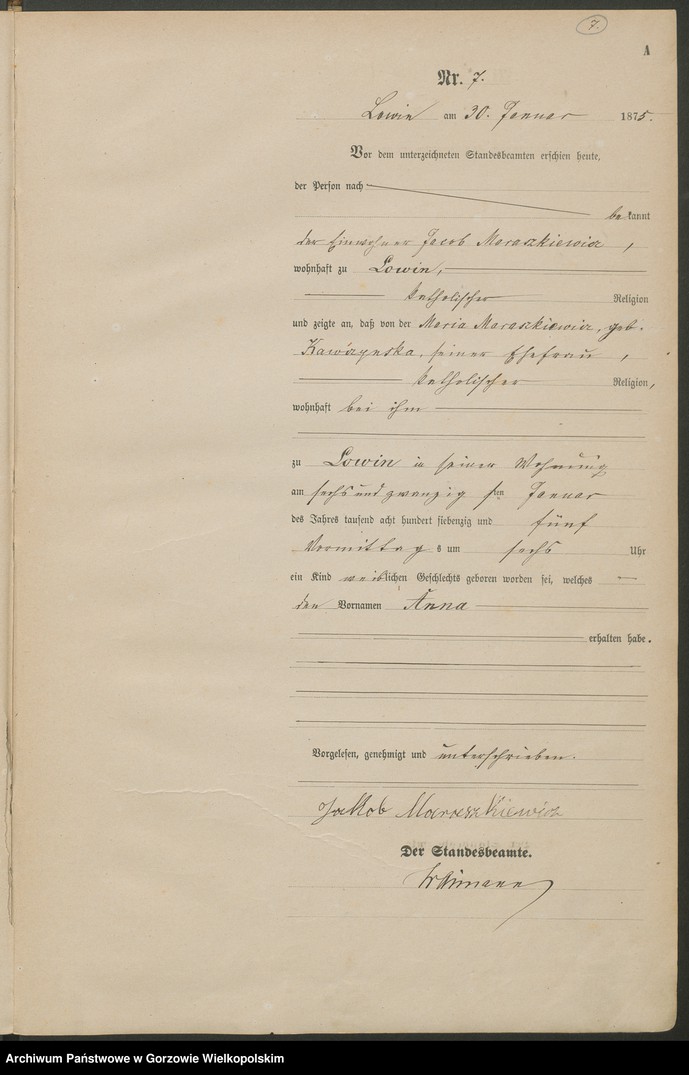 7.
A
Nr. 7.
Lowin am 30. Januar 1875.
Vor dem unterzeichneten Standesbeamten erschien heute,
der Person nach
bekannt
der Einwohner Jacob Maraszkiewicz,
wohnhaft zu Lowin,
katholischer Religion
und zeigte an, daß von der Maria Maraszkiewicz, geb.
seiner Ehefrau,
katholischer Religion,
wohnhaft bei ihm
zu Lowin in seiner Wohnung
am sechs und zwanzigsten Januar
des Jahres tausend acht hundert siebenzig und fünf
Vormittags um sechs Uhr
ein Kind weiblichen Geschlechts geboren worden sei, welches
den Vornamen Anna
erhalten habe.
Vorgelesen, genehmigt und unterschrieben.
Jakob Maraszkiewicz
Der Standesbeamte.
Archiwum Państwowe w Gorzowie Wielkopolskim